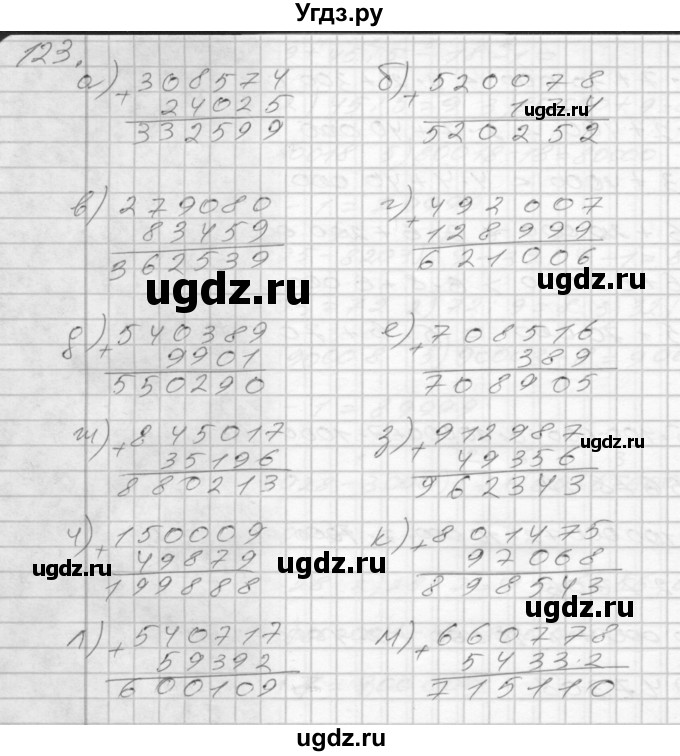 Угдз.ру
123.
а) +308574
24025
332599
б) +520078
ugdz.ru
520252
в) 279080
83459
362539
г) +492007
128999
621006
ugdz.ru
ugdz.ru
д) +540389
9901
550290
е) +708516
389
708905
ж) +845017
35196
880213
з) +912987
ugdz.ru
49356
962343
и) +150009
49879
199888
ugdz.ru
ugdz.ru
к) +801475
97068
898543
ugdz.ru
л) +540717
59392
600109
м) +660778
54332
715110
ugdz.ru
ugdz.ru